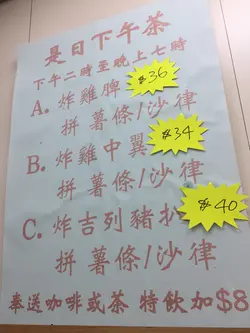 是日下午茶
下午二時至晚上七時
A. 炸雞脾 $36
拼薯條/沙律
B. 炸雞中翼 $34
拼薯條/沙律
C. 炸吉列豬扒 $40
拼薯條/沙律
奉送咖啡或茶 特飲加$8